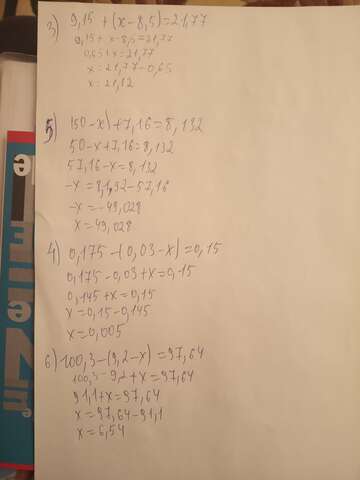 3) 9,15 + (x-8,5)=21,77
9,15 + x-8,5=21,77
0,65+x=21,77
x=21,77-0,65
x=21,12
5) (50-x)+7,16=8,132
50-x+7,16=8,132
57,16-x=8,132
-x=8,132-57,16
-x=-49,028
x=49,028
4) 0,175-(0,03-x)=0,15
0,175-0,03+x=0,15
0,145+x=0,15
x=0,15-0,145
x=0,005
6) 100,3-(9,2-x)=97,64
100,3-9,2+x=97,64
91,1+x=97,64
x=97,64-91,1
x=6,54